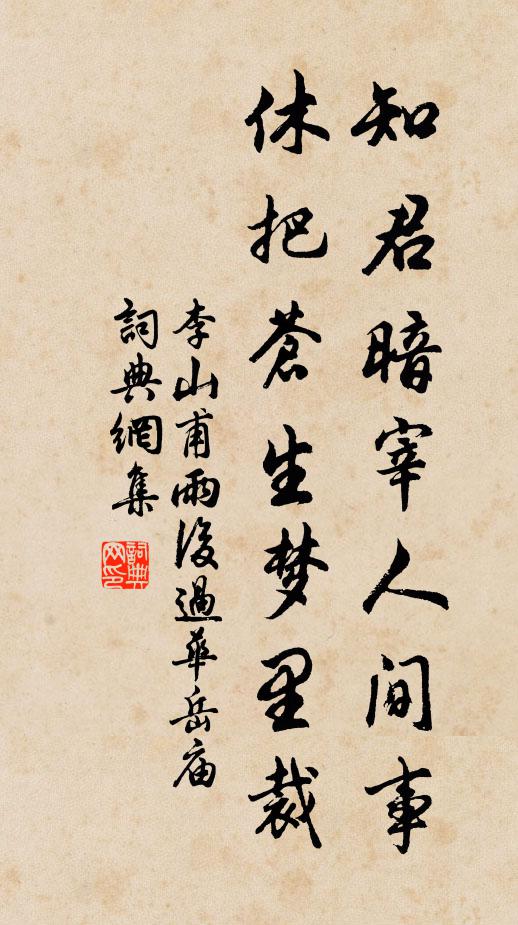 知君暗宰人间事
休把蒼生梦里裁
李山甫雨後過華岳庙
詞典網集
詞典网印